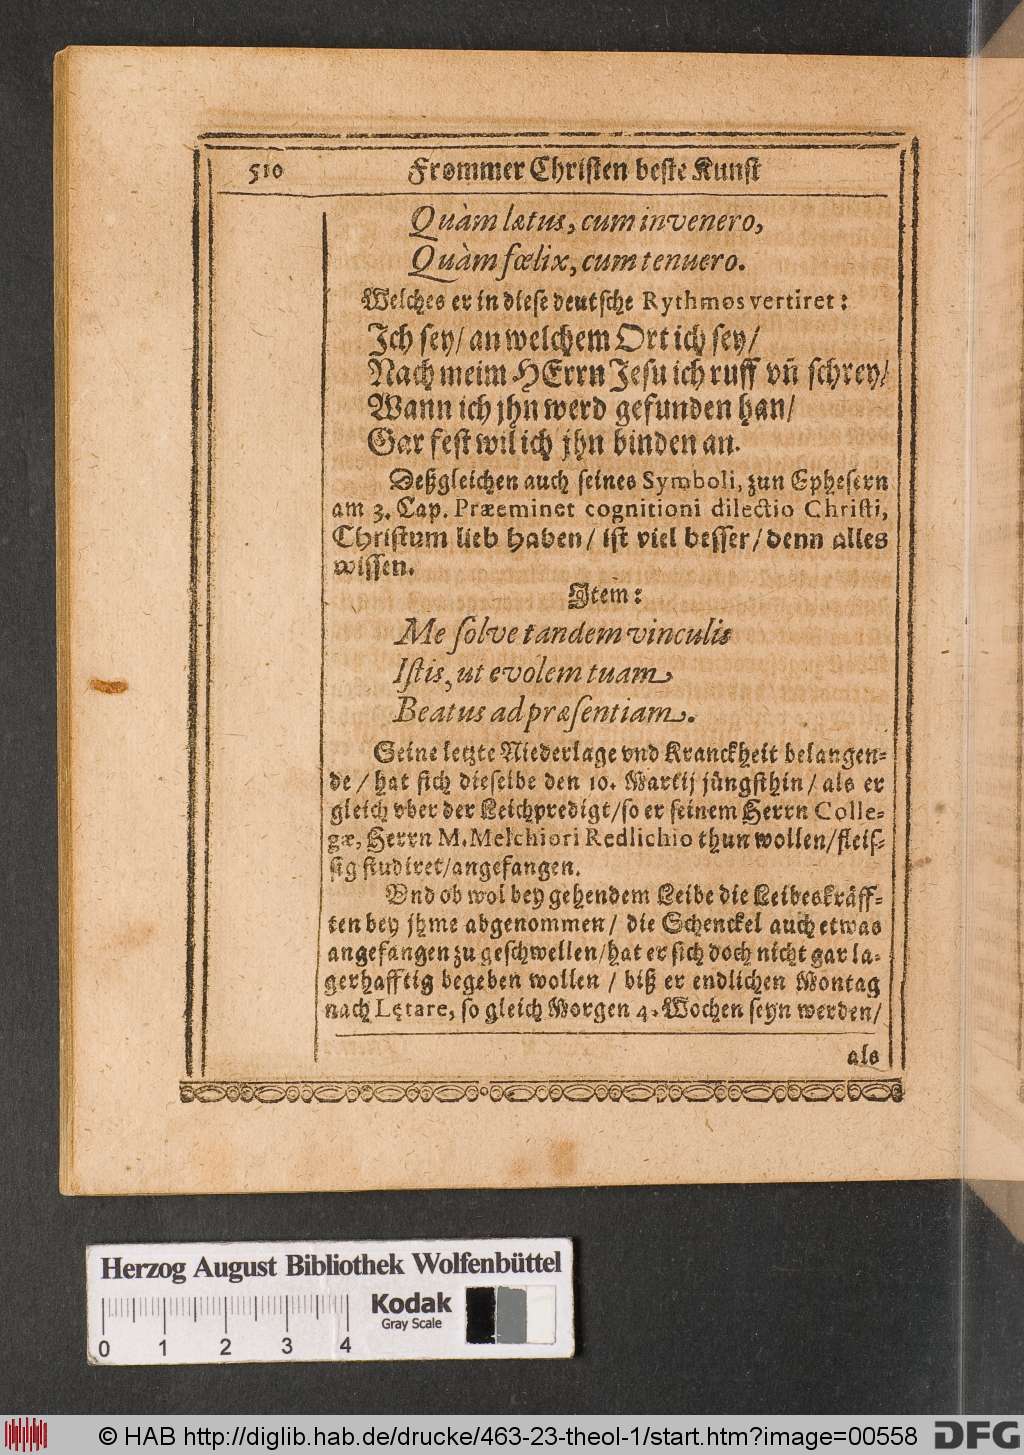 510 Frommer Christen beste Kunst
Quàm lætus, cum invenero,
Quàm fœlix, cum tenuero.
Welches er in diese deutsche Rythmos vertiret:
Ich sey/ an welchem Ort ich sey/
Nach meim HErrn Jesu ich ruff vñ schrey/
Wann ich jhn werd gefunden han/
Gar fest wil ich jhn binden an.
Deßgleichen auch seines Symboli, zun Ephesern
am 3. Cap. Præeminet cognitioni dilectio Christi,
Christum lieb haben/ ist viel besser/ denn alles
wissen.
Item:
Me solve tandem vinculis
Istis, ut evolem tuam
Beatus ad præsentiam.
Seine letzte Niederlage vnd Kranckheit belangen-
de/ hat sich dieselbe den 10. Martij jüngsthin/ als er
gleich vber der Leichpredigt/ so er seinem Herrn Colle-
gæ, Herrn M. Melchiori Redlichio thun wollen/ fleis-
sig studiret/ angefangen.
Vnd ob wol bey gehendem Leibe die Leibeskräff-
ten bey jhme abgenommen/ die Schenckel auch etwas
angefangen zu geschwellen/ hat er sich doch nicht gar la-
gerhafftig begeben wollen/ biß er endlichen Montag
nach Lętare, so gleich Morgen 4. Wochen seyn werden/
als
Herzog August Bibliothek Wolfenbüttel
Kodak
Gray Scale
0 1 2 3 4
© HAB http://diglib.hab.de/drucke/463-23-theol-1/start.htm?image=00558
DFG